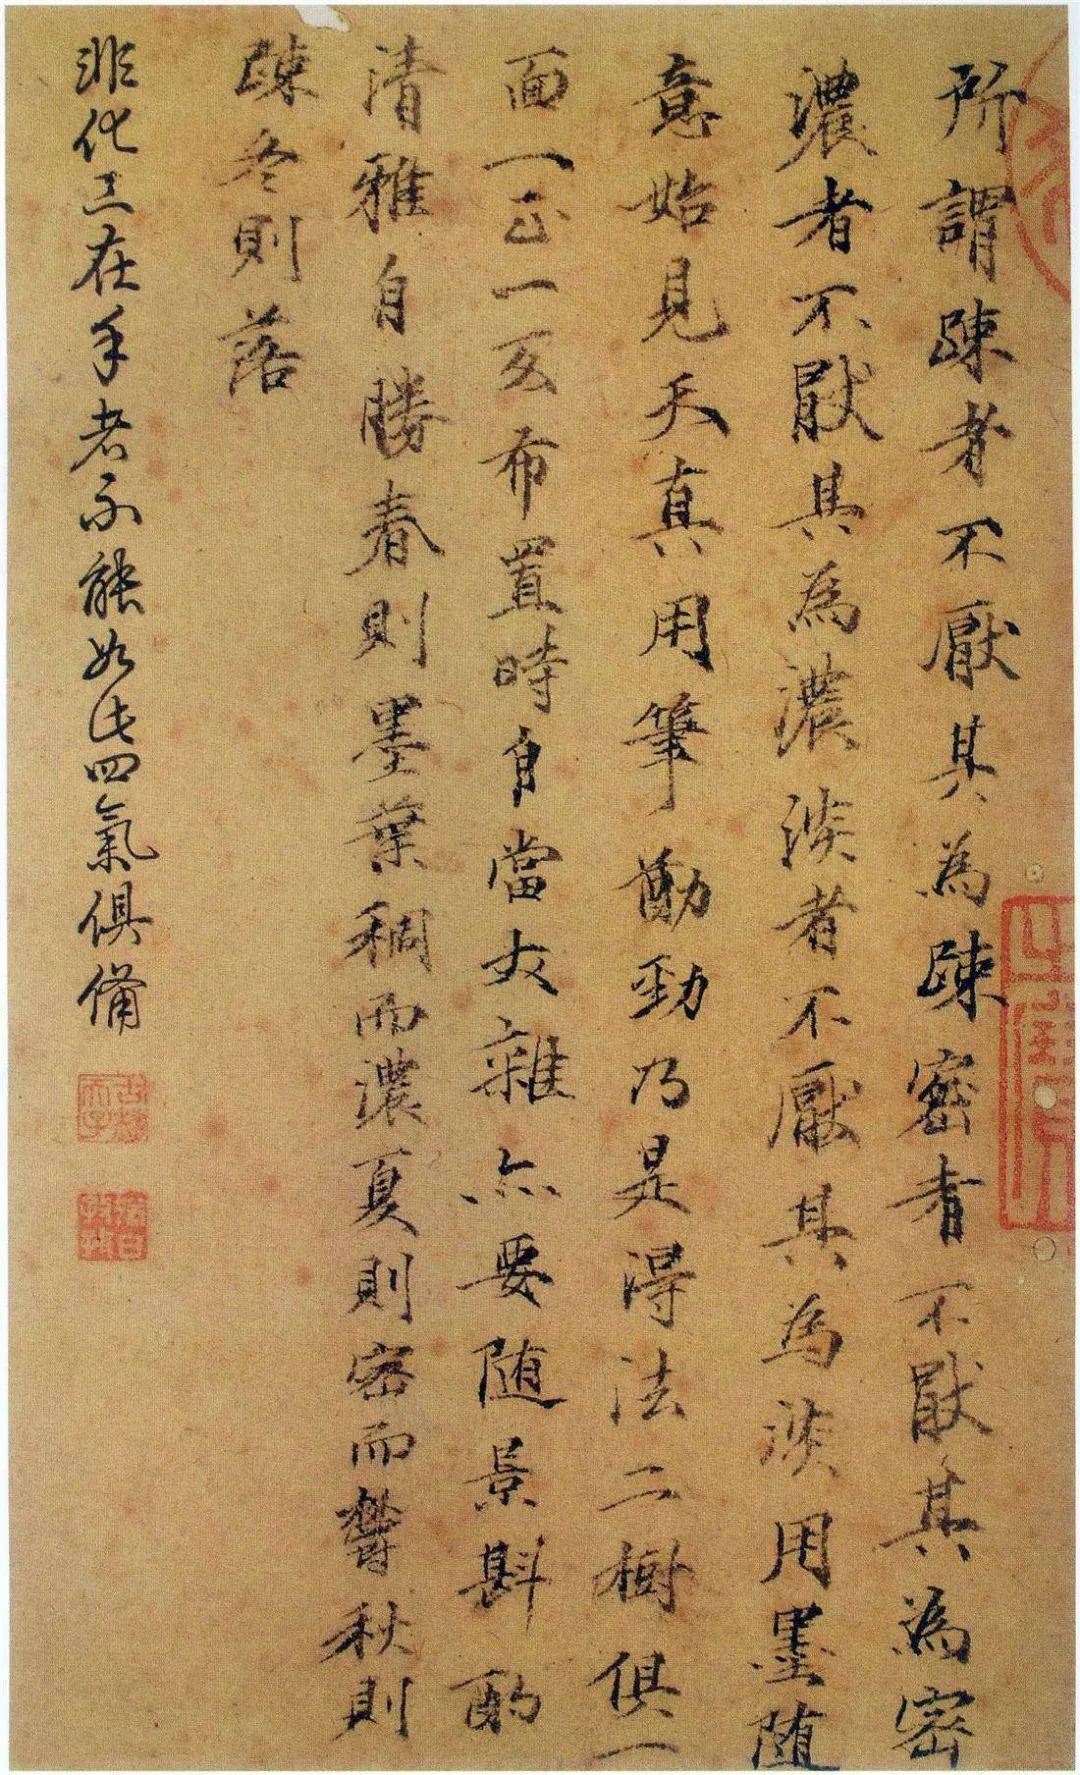 所謂踈者不厭其為踈密者不猒其為密
濃者不猒其為濃淡者不厭其為淡用墨随
意始見天真用筆勁乃是得法二樹俱一
面一正一亥布置時自當交雜亦要随景斟酌
清雅自勝春則墨葉稠而濃夏則密而欝秋則
踈冬則落
非化工在手者不能如此四氣俱備